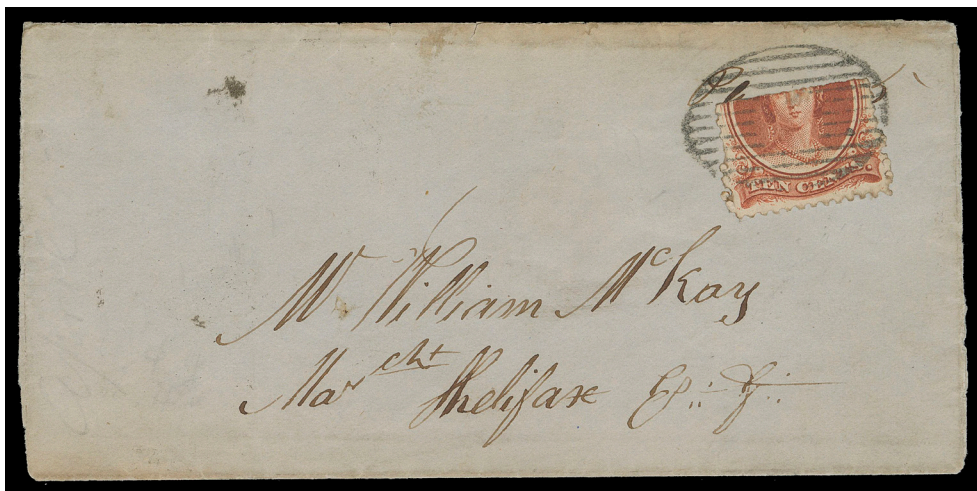 TEN CENTS
Mr William McKay
Marcht Helifax